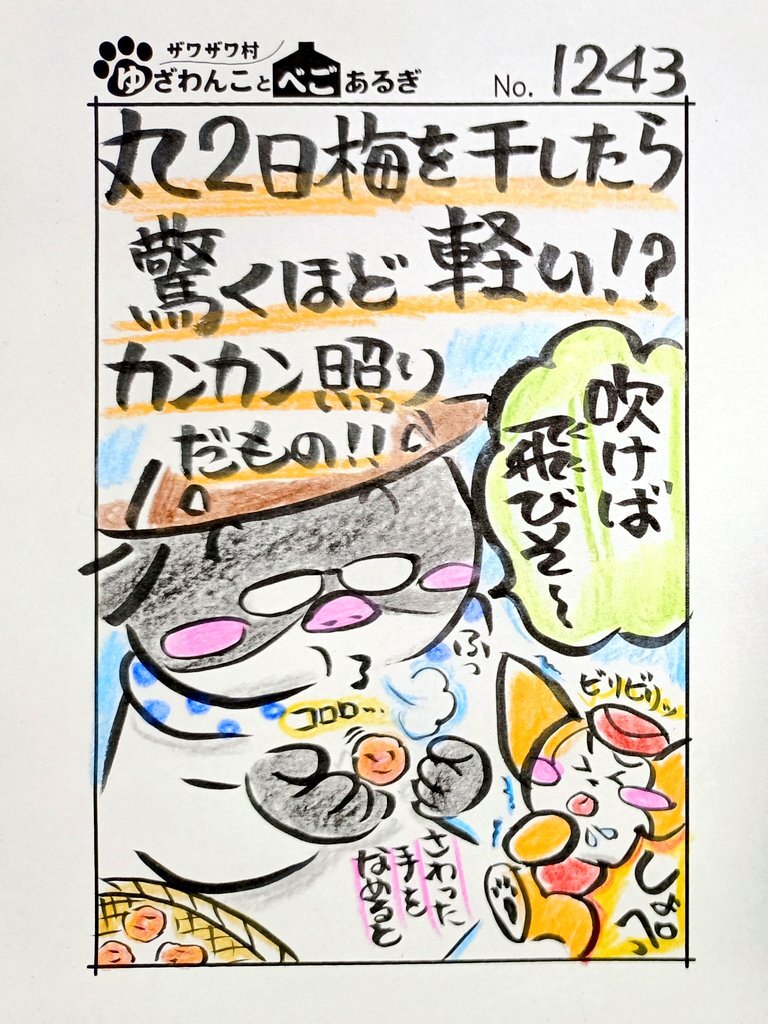 ザワザワ村
ゆざわんことべごあるぎ
No. 1243
丸2日梅を干したら
驚くほど軽い!?
カンカン照り
だもの!!
吹けば
飛びそ〜
ふっ
コロロ…
ビリビリッ
さわった
手を
なめると
しょぺっ